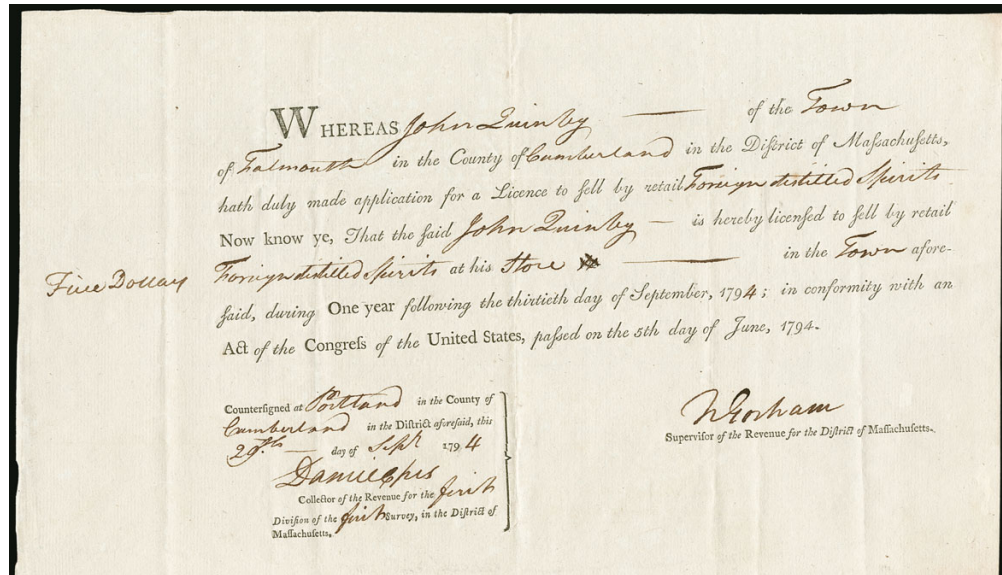 WHEREAS John Quinby of the Town
of Falmouth in the County of Cumberland in the Diſtrict of Maſſachuſetts,
hath duly made application for a Licence to ſell by retail Foreign distilled Spirits
Now know ye, That the ſaid John Quinby — is hereby licensed to ſell by retail
Five Dollars Foreign distilled Spirits at his Store in the Town afore-
ſaid, during One year following the thirtieth day of September, 1794; in conformity with an
Act of the Congreſs of the United States, paſſed on the 5th day of June, 1794.
Counterſigned at Portland in the County of
Cumberland in the Diſtrict aforeſaid, this
29th — day of Sept 1794
Daniel Epes
Collector of the Revenue for the first
Diviſion of the first Survey, in the Diſtrict of
Maſſachuſetts.
N Gorham
Superviſor of the Revenue for the Diſtrict of Maſſachuſetts.